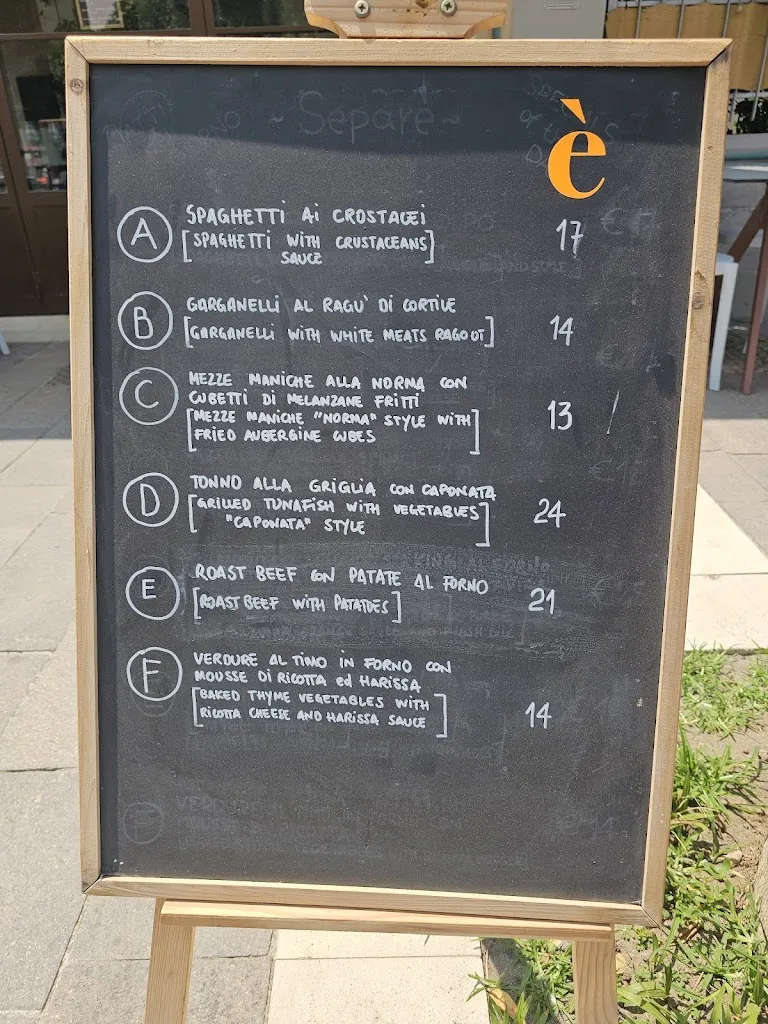 ~ Separè ~
è
A SPAGHETTI Ai CROSTACEI 17
[SPAGHETTI WITH CRUSTACEANS
SAUCE]
B GARGANELLI AL RAGU' DI CORTILE 14
[GARGANELLI WITH WHITE MEATS RAGOUT]
C MEZZE MANICHE ALLA NORMA CON 13
CUBETTI DI MELANZANE FRITTI
[MEZZE MANICHE "NORMA" STYLE WITH
FRIED AUBERGINE CUBES]
D TONNO ALLA GRIGLIA CON CAPONATA 24
[GRILLED TUNAFISH WITH VEGETABLES
"CAPONATA" STYLE]
E ROAST BEEF CON PATATE AL FORNO 21
[ROAST BEEF WITH PATATOES]
F VERDURE AL TIMO IN FORNO CON 14
MOUSSE DI RICOTTA ed HARISSA
[BAKED THYME VEGETABLES WITH
RICOTTA CHEESE AND HARISSA SAUCE]